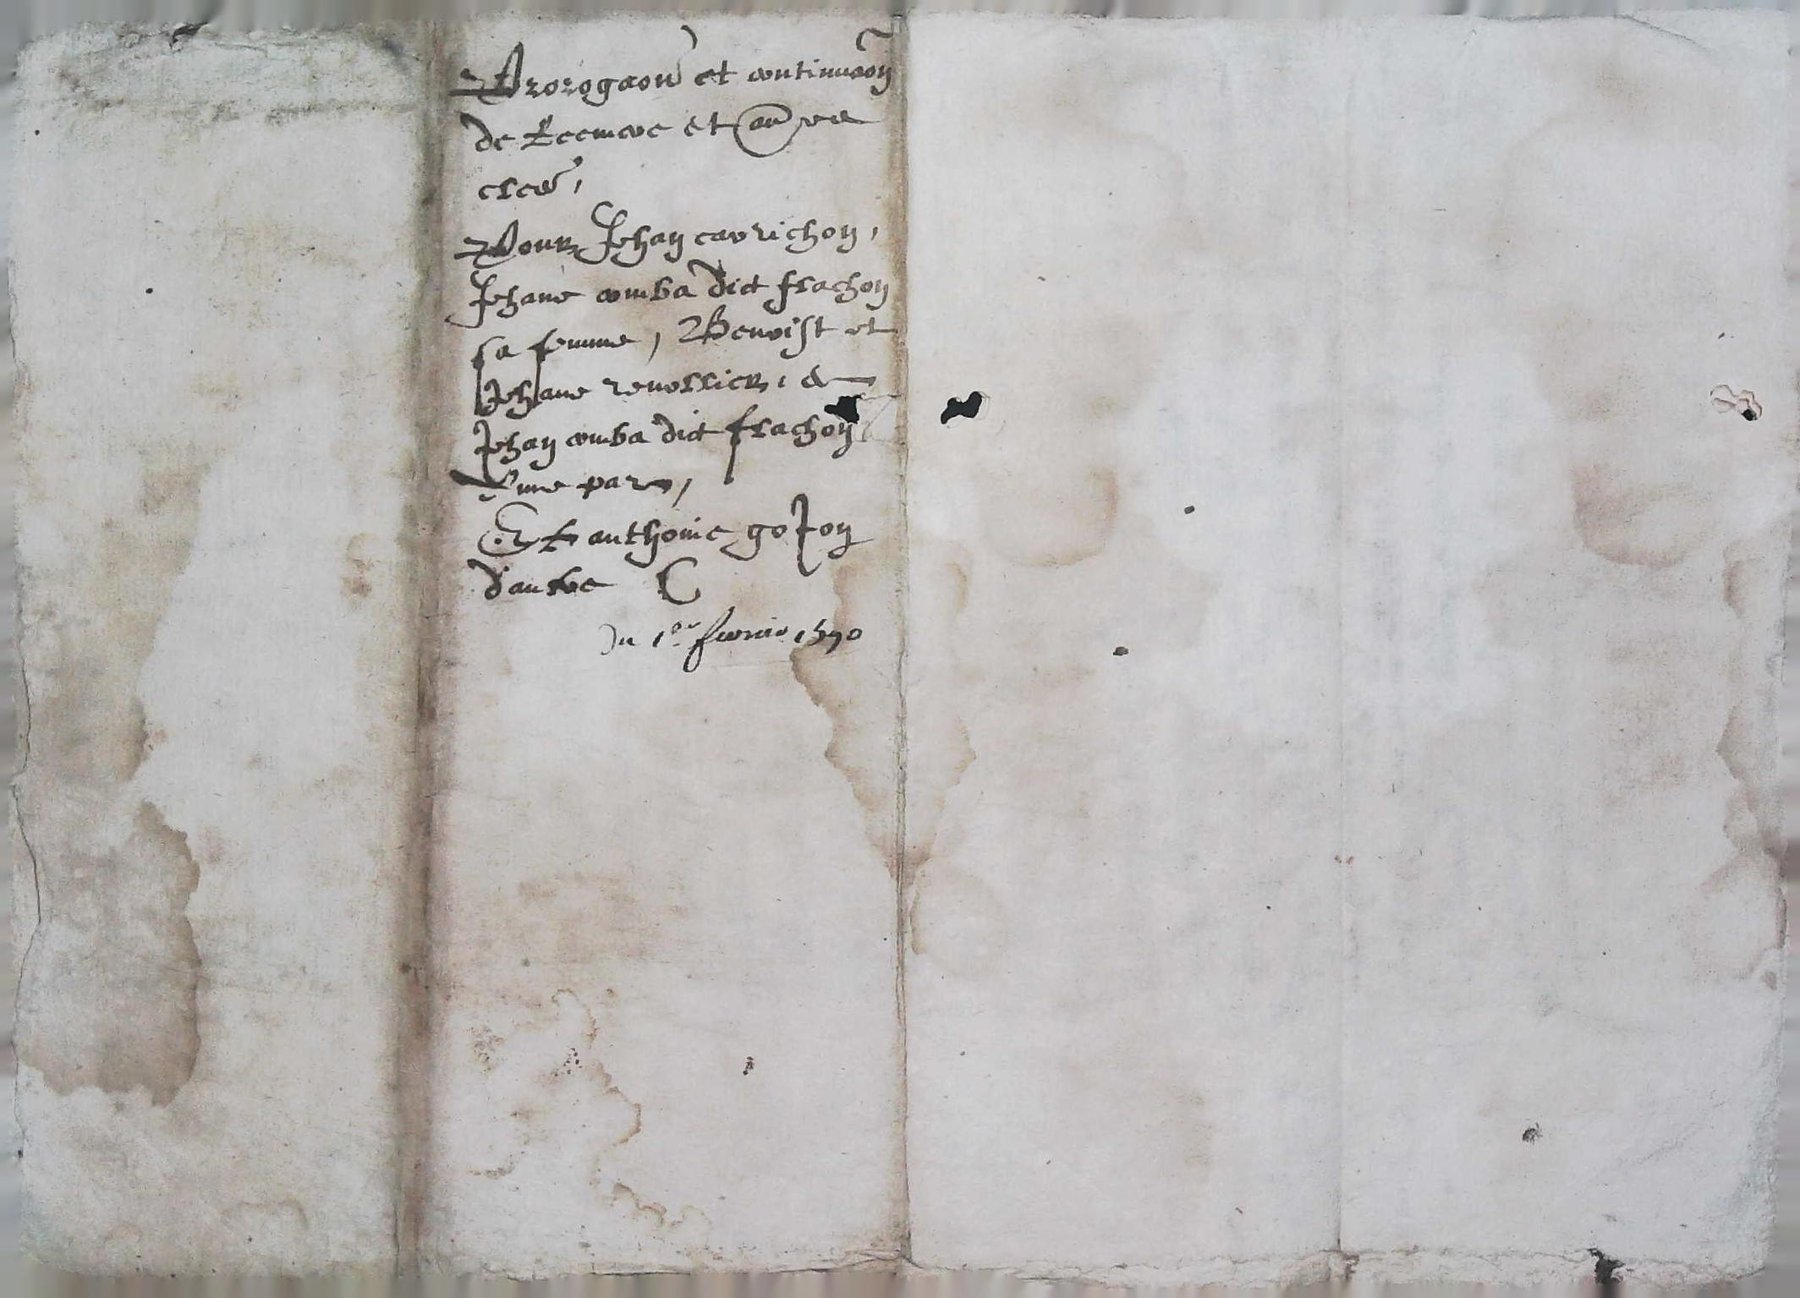 Prorogaon et continuaon
de Reemere et
Pour Jehan cavrichon,
Jehane comba dict frachon
sa femme, Benoist et
Jehane revollier, &
Jehan comba dict frachon
d'une part,
Et anthonie goJon
d'autre
Du 1er 1590